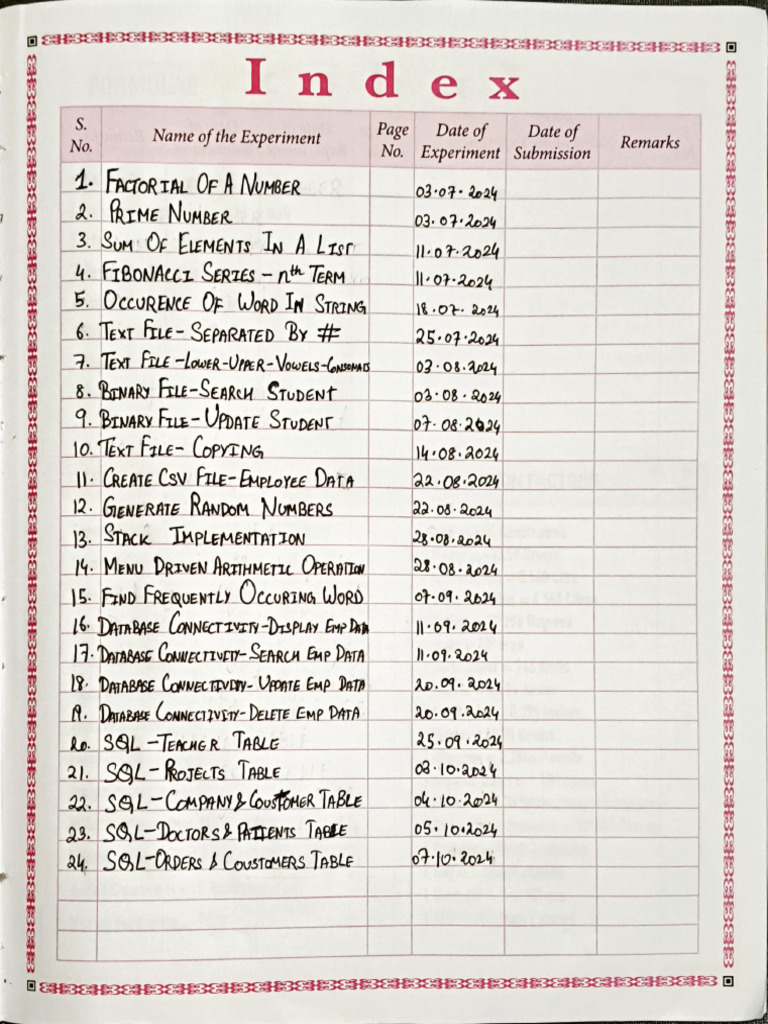 Index
S. No. Name of the Experiment Page No. Date of Experiment Date of Submission Remarks
1. FACTORIAL OF A NUMBER 03.07.2024
2. PRIME NUMBER 03.07.2024
3. SUM OF ELEMENTS IN A LIST 11.07.2024
4. FIBONACCI SERIES - nth TERM 11.07.2024
5. OCCURENCE OF WORD IN STRING 18.07.2024
6. TEXT FILE - SEPARATED BY # 25.07.2024
7. TEXT FILE - LOWER - UPPER - VOWELS - CONSONANTS 03.08.2024
8. BINARY FILE - SEARCH STUDENT 03.08.2024
9. BINARY FILE - UPDATE STUDENT 07.08.2024
10. TEXT FILE - COPYING 14.08.2024
11. CREATE CSV FILE - EMPLOYEE DATA 22.08.2024
12. GENERATE RANDOM NUMBERS 22.08.2024
13. STACK IMPLEMENTATION 28.08.2024
14. MENU DRIVEN ARITHMETIC OPERATION 28.08.2024
15. FIND FREQUENTLY OCCURING WORD 07.09.2024
16. DATABASE CONNECTIVITY - DISPLAY EMP DATA 11.09.2024
17. DATABASE CONNECTIVITY - SEARCH EMP DATA 11.09.2024
18. DATABASE CONNECTIVITY - UPDATE EMP DATA 20.09.2024
19. DATABASE CONNECTIVITY - DELETE EMP DATA 20.09.2024
20. SQL - TEACHER TABLE 25.09.2024
21. SQL - PROJECTS TABLE 03.10.2024
22. SQL - COMPANY & COUSTOMER TABLE 04.10.2024
23. SQL - DOCTORS & PATIENTS TABLE 05.10.2024
24. SQL - ORDERS & COUSTOMERS TABLE 07.10.2024